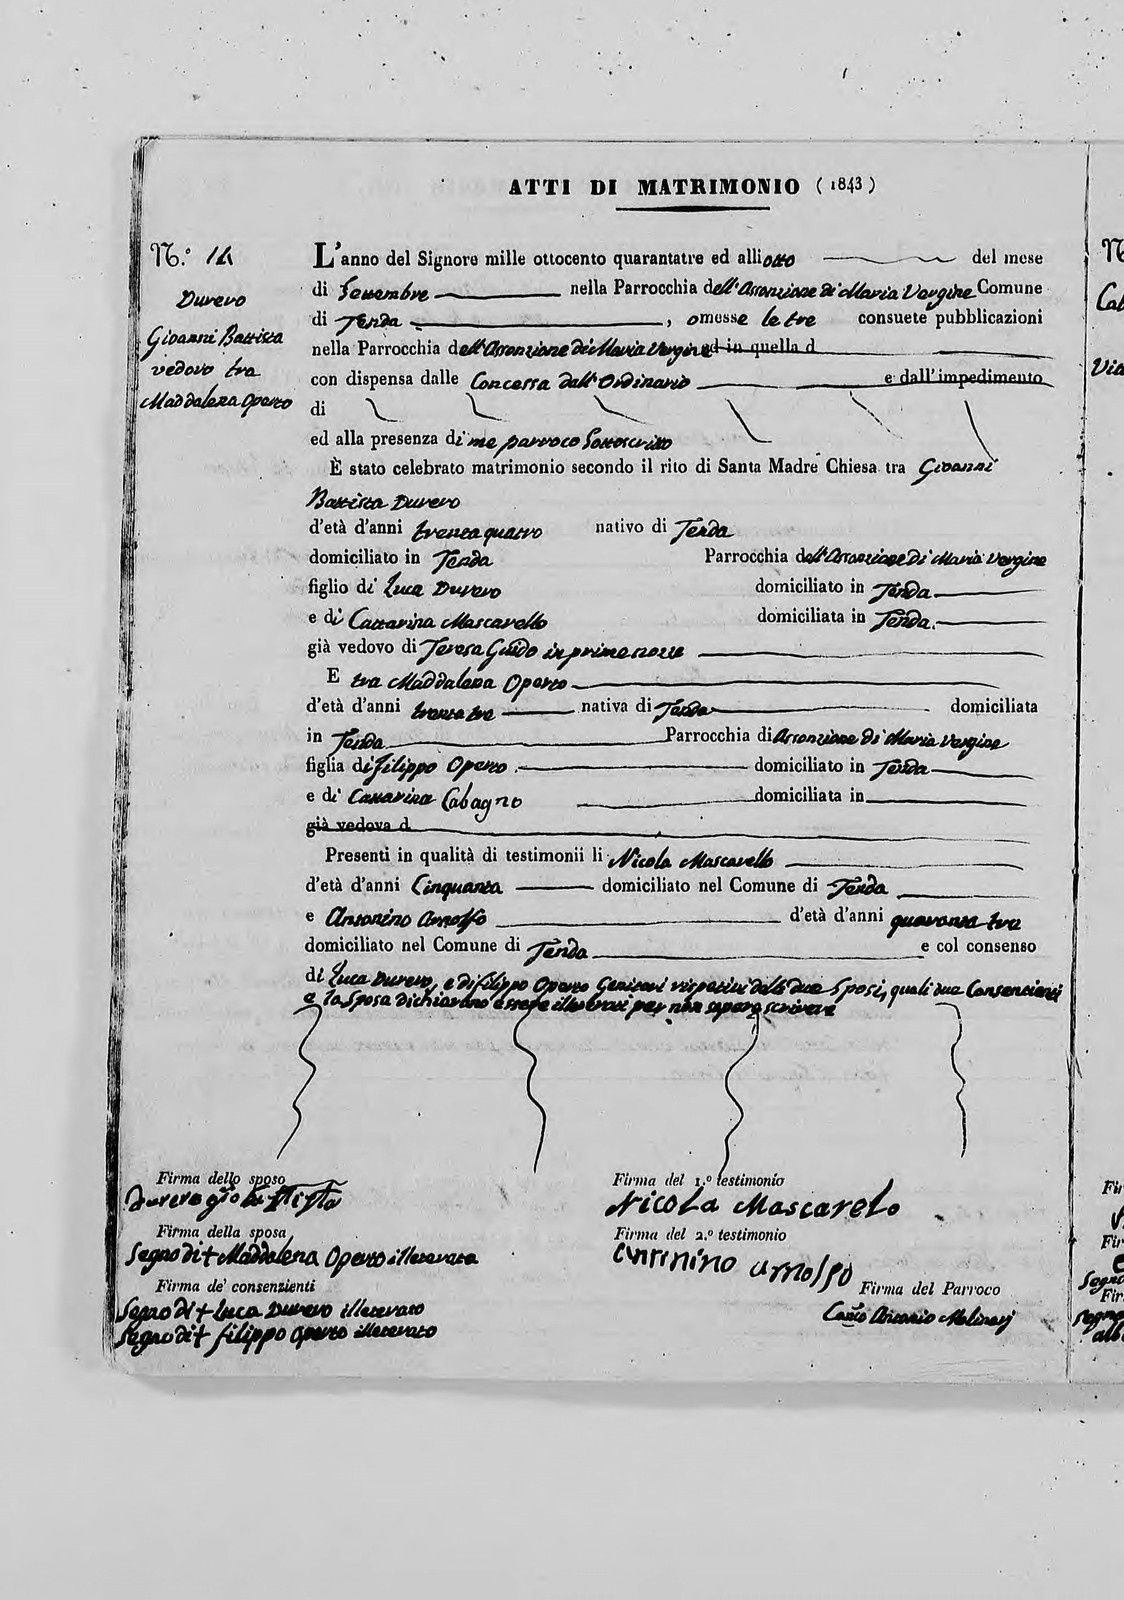 ATTI DI MATRIMONIO (1843)
N.º 14
Durero
Giovanni Battista
vedovo tra
Maddalena Operto
L'anno del Signore mille ottocento quarantatre ed alli otto del mese
di Settembre nella Parrocchia dell'Assonzione di Maria Vergine Comune
di Tenda, omesse le tre consuete pubblicazioni
nella Parrocchia dell'Assonzione di Maria Vergine ed in quella d
con dispensa dalle Concessa dall'Ordinario e dall'impedimento
di
ed alla presenza di me parroco Sottoscritto
È stato celebrato matrimonio secondo il rito di Santa Madre Chiesa tra Giovanni
Battista Durero
d'età d'anni trenta quatro nativo di Tenda
domiciliato in Tenda Parrocchia dell'Assonzione di Maria Vergine
figlio di Luca Durero domiciliato in Tenda
e di Cattarina Mascarello domiciliata in Tenda.
già vedovo di Teresa Guido in prime nozze
E tra Maddalena Operto
d'età d'anni trenta tre nativa di Tenda domiciliata
in Tenda Parrocchia di Assonzione di Maria Vergine
figlia di Filippo Operto domiciliato in Tenda
e di Cattarina Cabagno domiciliata in
già vedova d
Presenti in qualità di testimonii li Nicola Mascarello
d'età d'anni Cinquanta domiciliato nel Comune di Tenda
e Antonino Arnolfo d'età d'anni quaranta tre
domiciliato nel Comune di Tenda e col consenso
di Luca Durero, e di Filippo Operto Genitori rispetivi delli due Sposi, quali due Consencienti
e la Sposa dichiarano essere illeterati per non sapere scrivere
Firma dello sposo
durero gio batista
Firma della sposa
Segno di + Maddalena Operto illeterata
Firma de' consenzienti
Segno di + Luca Durero illeterato
Segno di + Filippo Operto illeterato
Firma del 1.º testimonio
Nicola Mascarelo
Firma del 2.º testimonio
antonino arnolfo
Firma del Parroco
Antonio Molinarj